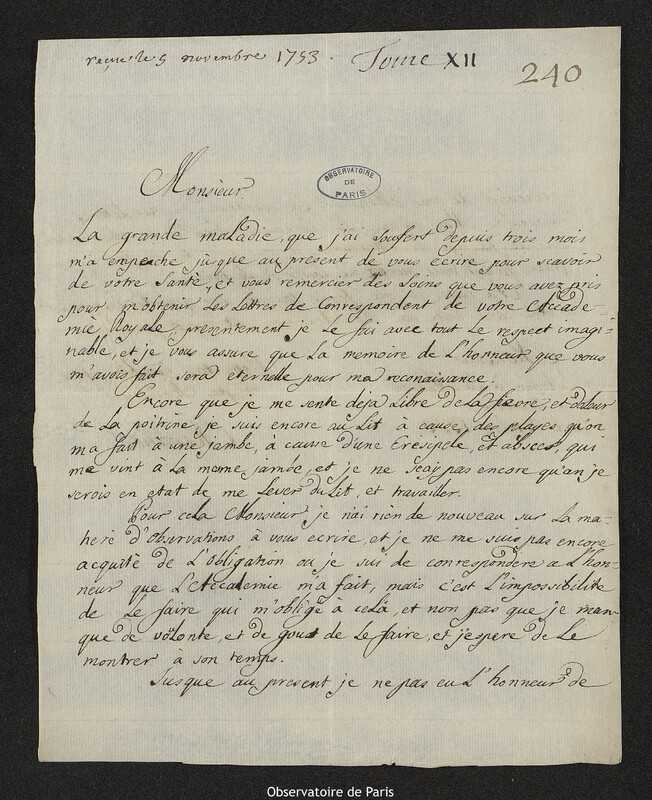 reçue le 5 novembre 1753. Tome XII
240
Monsieur
OBSERVATOIRE
DE
PARIS
La grande maladie, que j'ai soufert depuis trois mois
m'a empeche jusque au present de vous ecrire pour scavoir
de votre santè, et vous remercier des soins que vous avez pris
pour m'obtenir Les Lettres de Correspondent de votre Accade-
mie Royale, presentement je Le fai avec tout Le respect imagi-
nable, et je vous assure que La memoire de L'honneur que vous
m'avois fait sera eternelle pour ma reconaissance.
Encore que je me sente deja Libre de La fievre, et doleur
de La poitrine, je suis encore au Lit à cause des playes qu'on
m'a fait à une jambe, à cause d'une Eresipele, et absces, qui
me vint à La meme jambe, et je ne sçay pas encore qu'an je
serois en etat de me Lever du Lit, et travailler.
Pour cela Monsieur je n'ai rien de nouveau sur La ma-
tiere d'Observations à vous ecrire, et je ne me suis pas encore
acquité de L'Obligation ou je sui de correspondere a L'hon-
neur que L'Accademie m'a fait, mais c'est L'impossibilite
de Le faire qui m'oblige à celà, et non pas que je man-
que de volonte, et de gout de Le faire, et j'espere de Le
montrer à son temps.
Jusque au present je ne pas eu L'honneur de
Observatoire de Paris